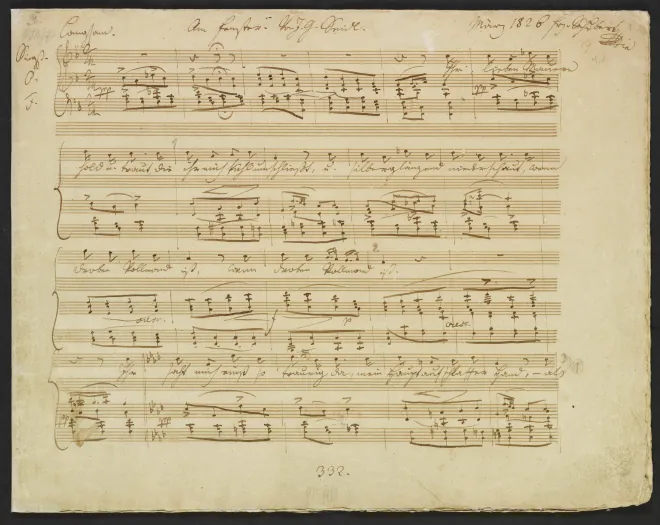 Langsam. Am Fenster. J. G. Seidl. März 1826
Ihr lieben Mauern
hold u. traut, die ihr mich kühl umschließt, u. silberglänzend niederschaut, wenn
droben Vollmond ist, wenn droben Vollmond ist.
cresc. p cresc.
ihr saht mich einst so traurig da, mein Haupt auf schlaffer Hand, – als
332.